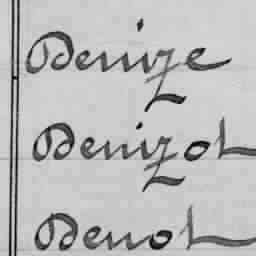 Denize
Denizot
Denot